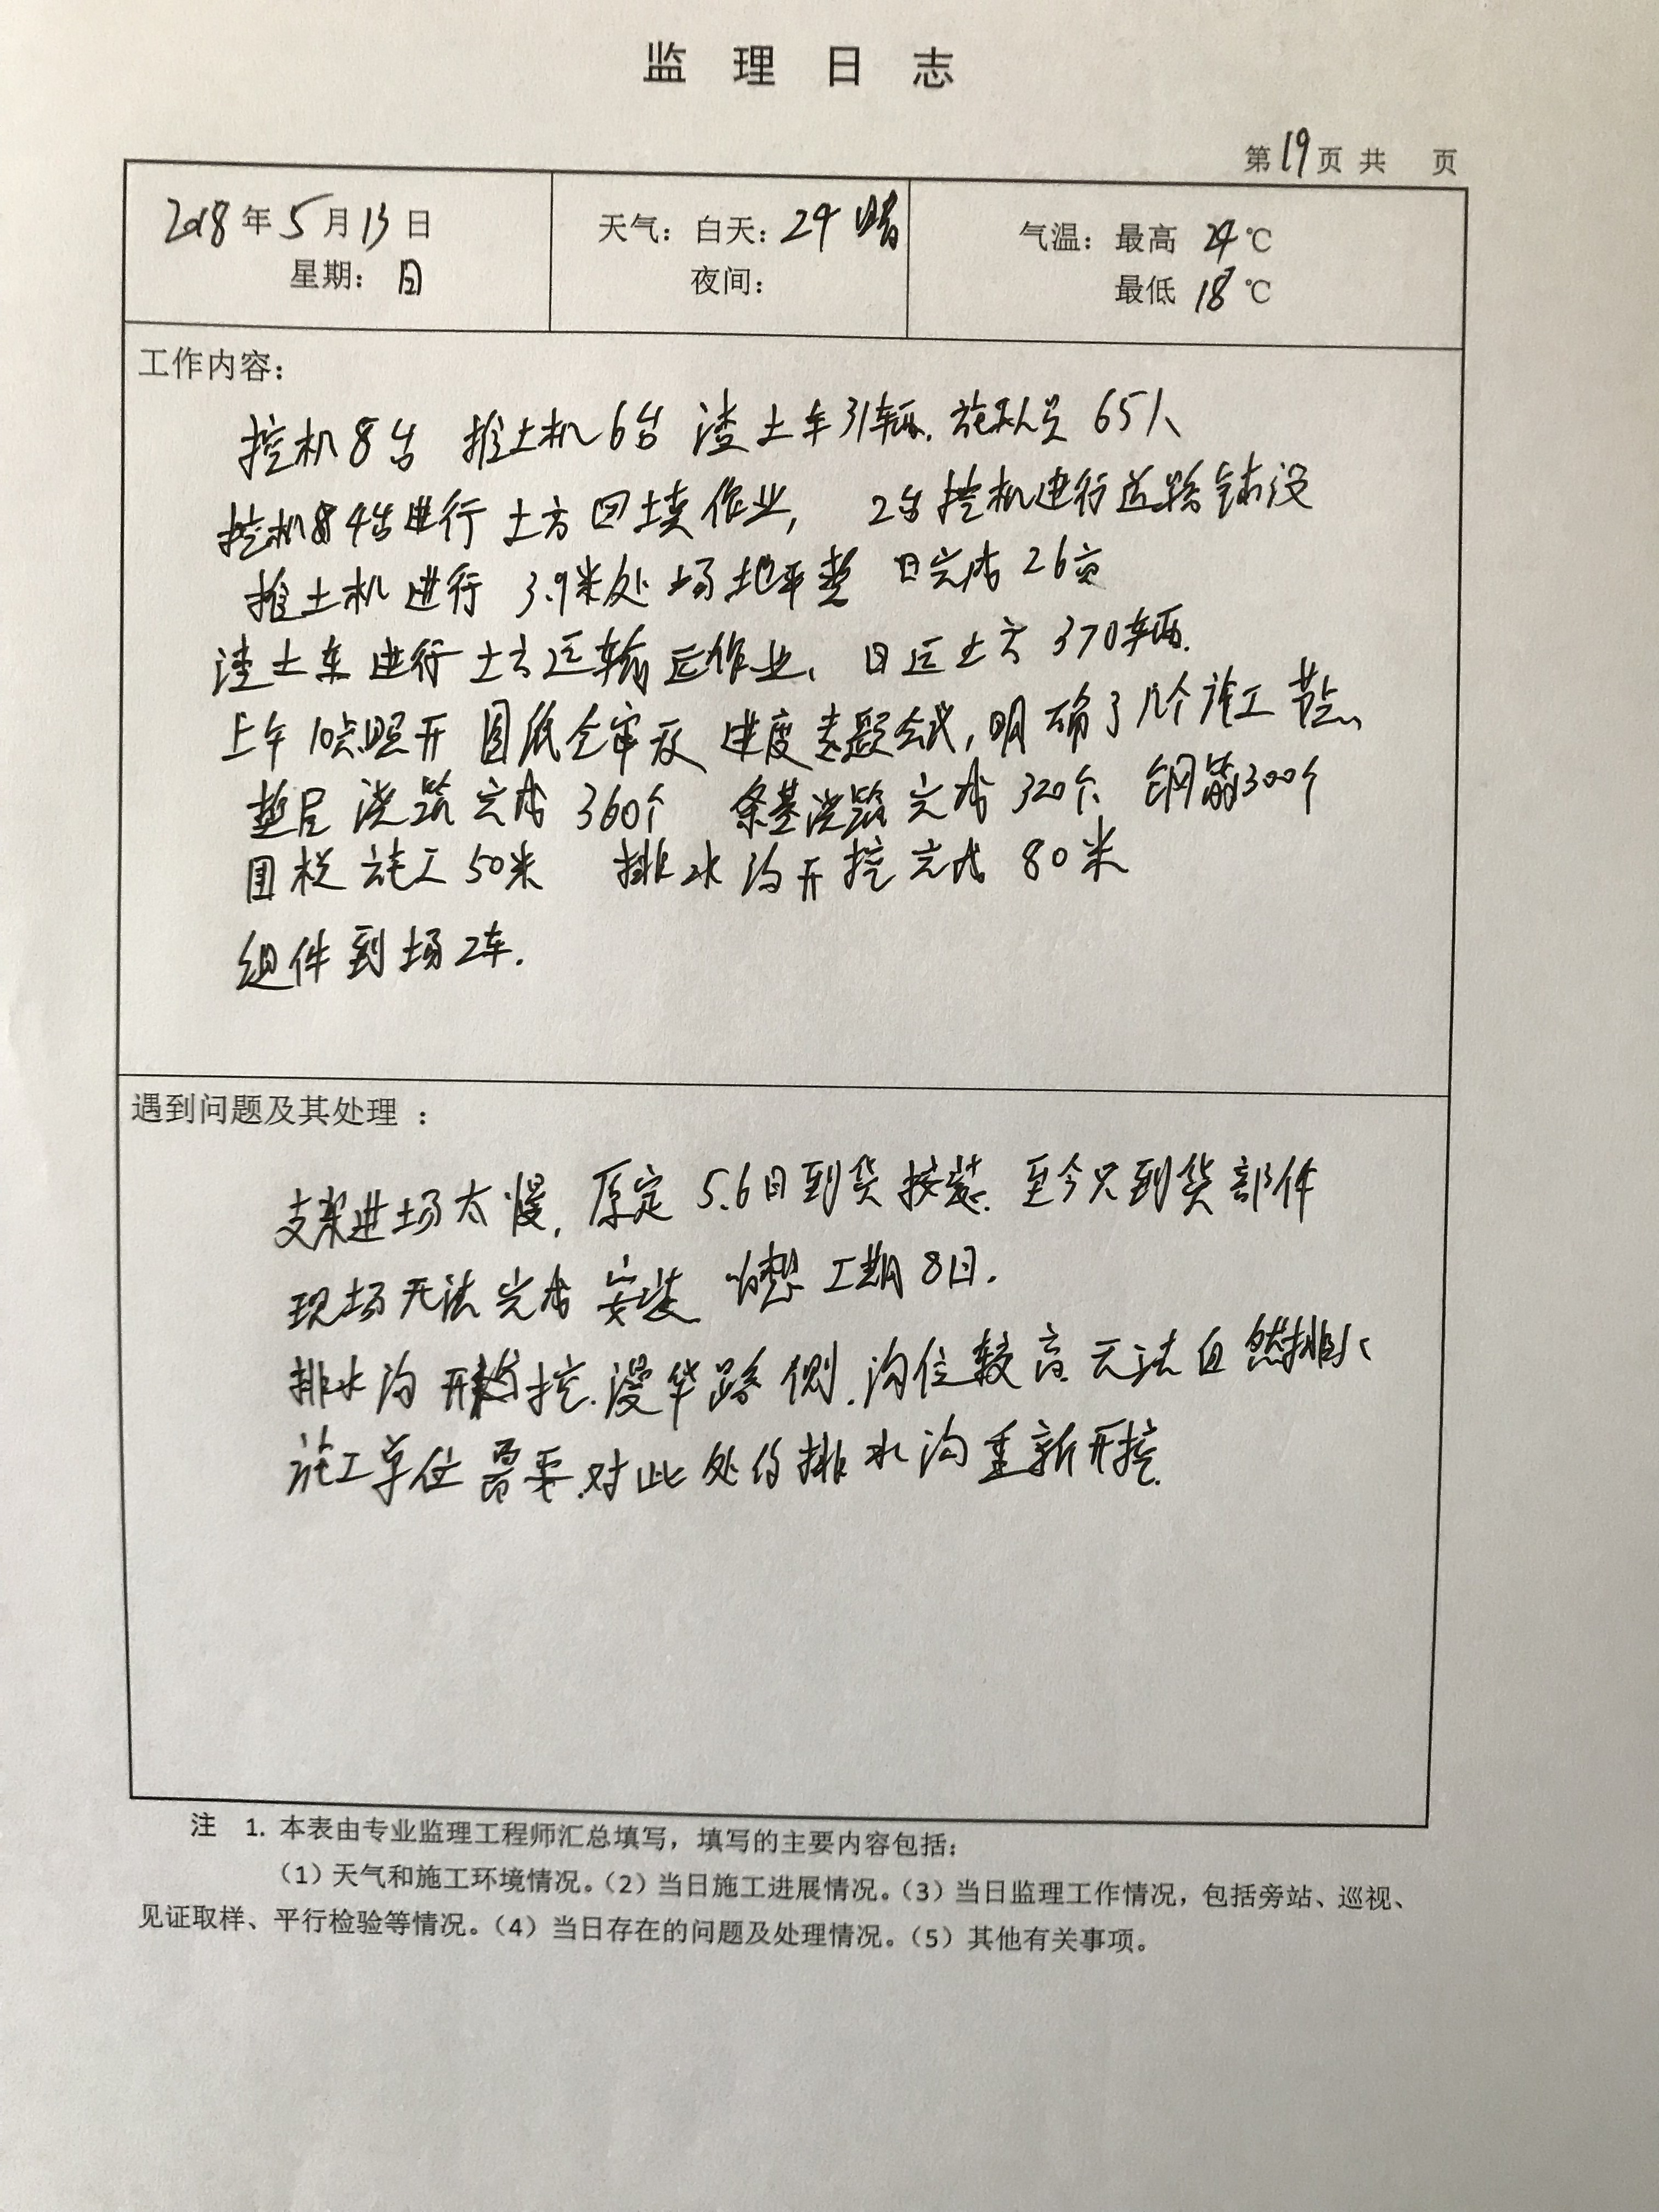 监理日志
第19页 共 页
2018年5月13日
星期：日
天气：白天：24 晴
夜间：
气温：最高 24℃
最低 18℃
工作内容：
挖机8台 推土机6台 渣土车31辆. 施工人员 65人
挖机4台进行 土方回填作业， 2台挖机进行道路铺设
推土机进行 3.9米处场地平整 日完成26亩
渣土车进行土方运输运作业、日运土方370车辆.
上午10点照开 图纸会审及 进度专题会议，明确了几个施工节点、
垫层浇筑完成360个 条基浇筑完成320个 钢筋300个
围栏施工50米 排水沟开挖完成80米
组件到场2车.
遇到问题及其处理 ：
支架进场太慢，原定5.6日到货按装. 至今只到货部件
现场无法完成安装 工期8日.
排水沟开挖.漫华路侧.沟位较高 无法自然排水
施工单位需要.对此处的排水沟重新开挖.
注 1. 本表由专业监理工程师汇总填写，填写的主要内容包括：
（1）天气和施工环境情况。（2）当日施工进展情况。（3）当日监理工作情况，包括旁站、巡视、
见证取样、平行检验等情况。（4）当日存在的问题及处理情况。（5）其他有关事项。